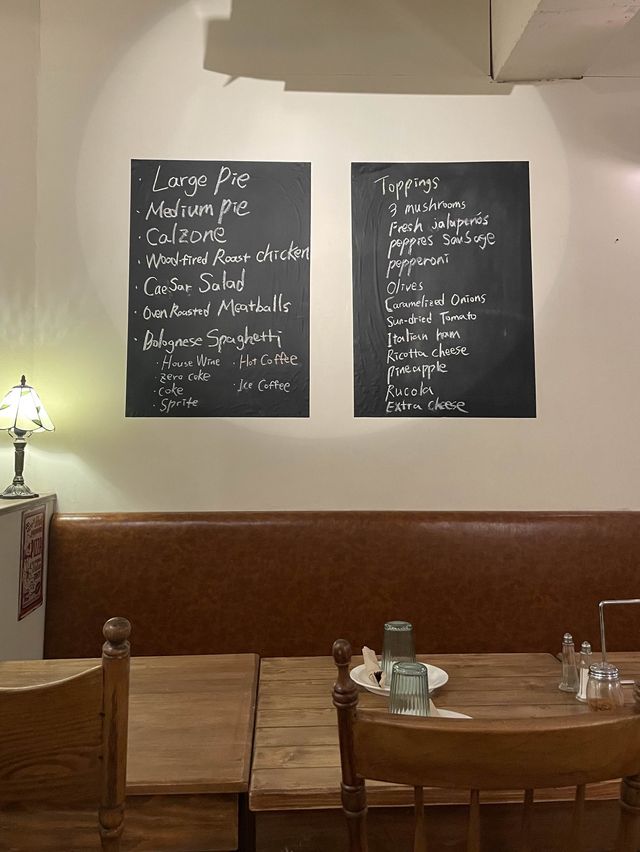 · Large Pie
· Medium Pie
· Calzone
· Wood-fired Roast chicken
· Caesar Salad
· Oven Roasted Meatballs
· Bolognese Spaghetti
· House Wine
· Zero coke
· coke
· Sprite
· Hot Coffee
· Ice Coffee
Toppings
3 mushrooms
Fresh jalapenós
peppies Sausage
pepperoni
Olives
Caramelized Onions
Sun-dried Tomato
Italian ham
Ricotta cheese
pineapple
Rucola
Extra cheese